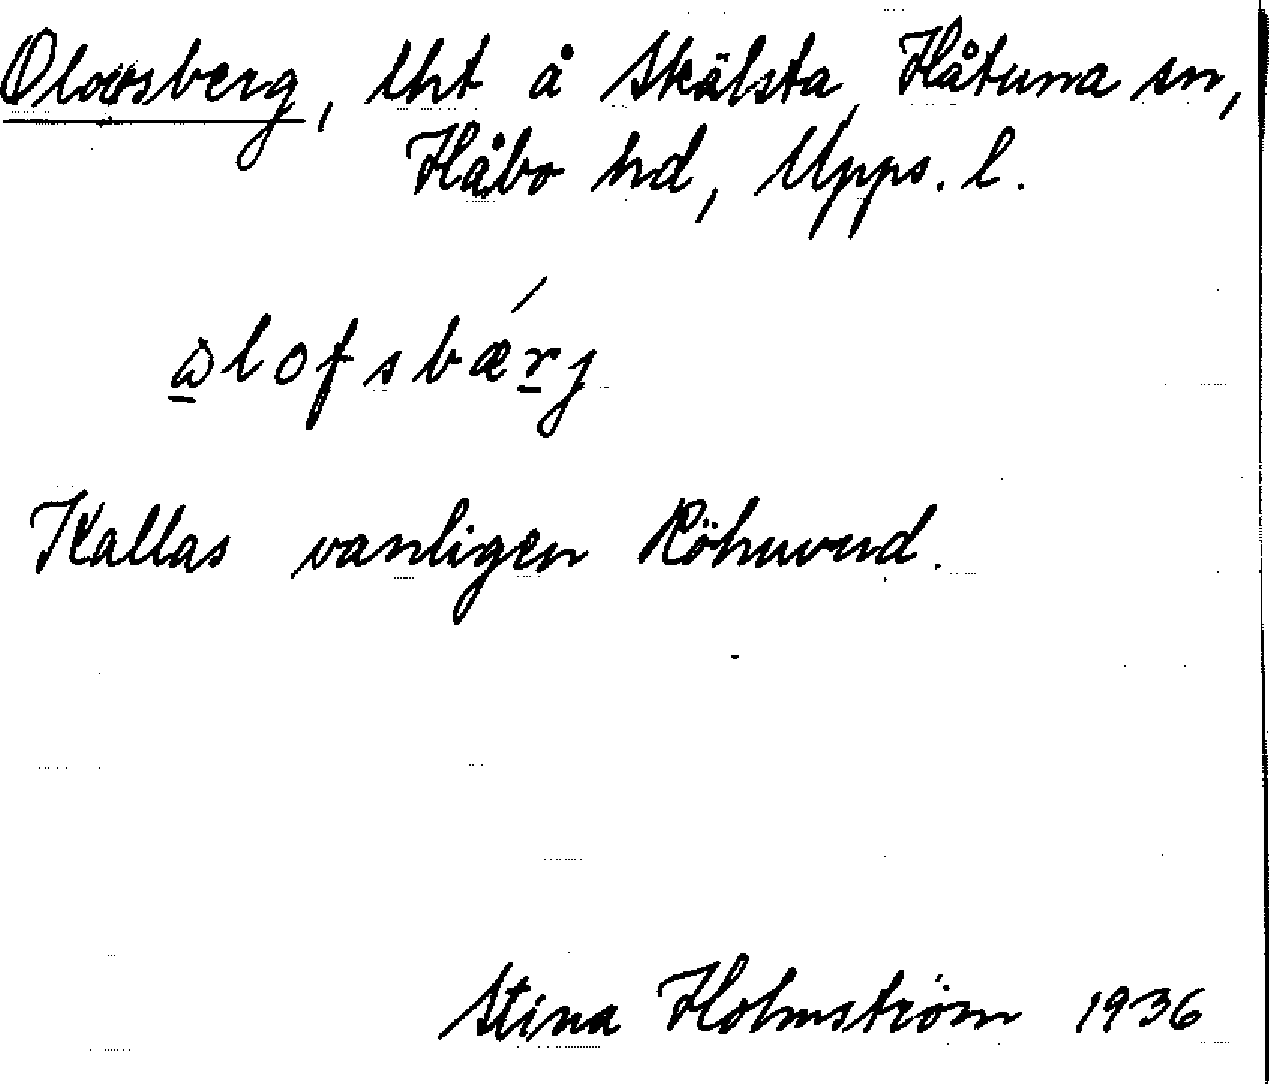 Olovsberg, lht å Skälsta, Håtuna sn,
Håbo hd, Upps. l.
ωlofsbǽrj
Kallas vanligen Röhuvud.
Stina Holmström 1936